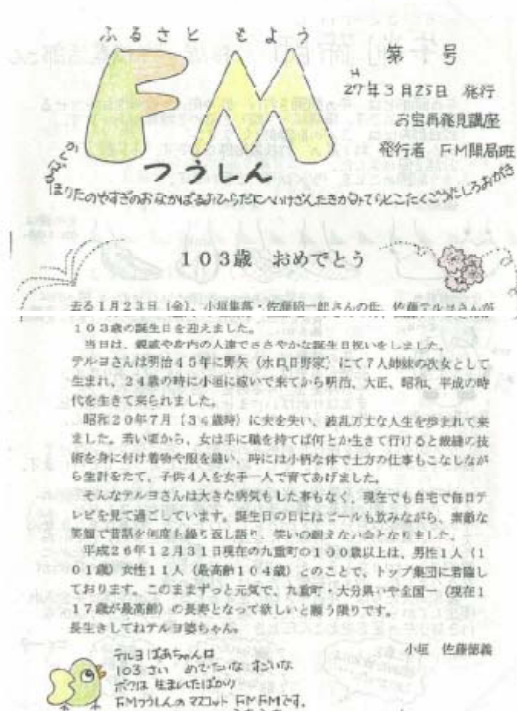 ふるさと もよう
FM
つうしん
第 号
H27年3月25日 発行
お宝再発見講座
発行者 FM開局班
103歳 おめでとう
去る1月23日(金)、小垣集落・佐藤昭一郎さんの母、佐藤テルヨさんが
103歳の誕生日を迎えました。
当日は、親戚や身内の人達でささやかな誕生日祝いをしました。
テルヨさんは明治45年に野矢(水口日野家)にて7人姉妹の次女として
生まれ、24歳の時に小垣に嫁いで来てから明治、大正、昭和、平成の時
代を生きて来られました。
昭和20年7月(34歳時)に夫を失い、波乱万丈な人生を歩まれて来
ました。若い頃から、女は手に職を持てば何とか生きて行けると裁縫の技
術を身に付け着物や服を縫い、時には小柄な体で土方の仕事もこなしなが
ら生計をたて、子供4人を女手一人で育てあげました。
そんなテルヨさんは大きな病気もした事もなく、現在でも自宅で毎日テ
レビを見て過ごしています。誕生日の日にはビールも飲みながら、素敵な
笑顔で昔話を何度も繰り返し語り、笑いの絶えない会となりました。
平成26年12月31日現在の九重町の100歳以上は、男性1人(1
01歳)女性11人(最高齢104歳)とのことで、トップ集団に君臨し
ております。このままずっと元気で、九重町・大分県いや全国一(現在1
17歳が最高齢)の長寿となって欲しいと願う限りです。
長生きしてねテルヨ婆ちゃん。
小垣 佐藤
テルヨばあちゃんは
103さい めでたいな すごいな
ボクは 生まれたばかり
FMつうしんの マスコット FMFMです。